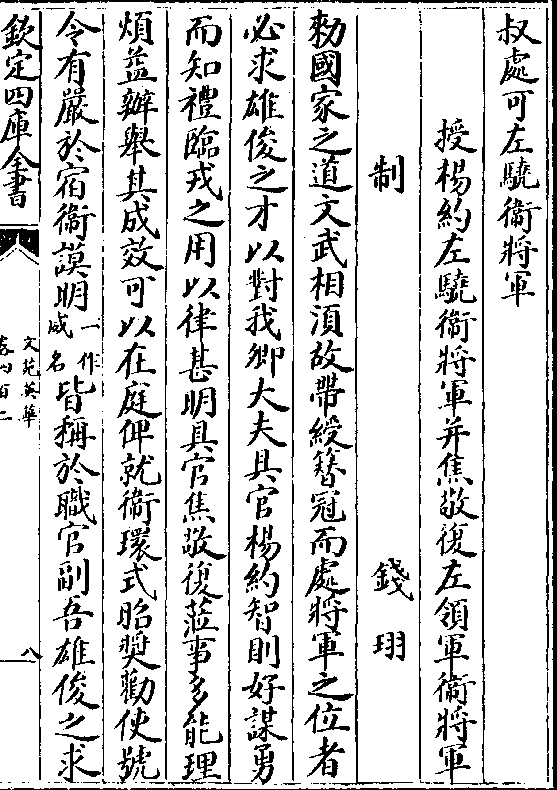 叔處可左驍衛將軍
授楊約左驍衛將軍并焦敬復左領軍衛將軍
制 錢珝
勑國家之道文武相須故帶綬簪冠而處將軍之位者
必求雄俊之才以對我卿大夫具官楊約智則好謀勇
而知禮臨戎之用以律甚明具官焦敬復蒞事多能理
煩益辦舉其成效可以在庭俾就衛環式昭奬勸使號
令有嚴於宿衛謨明一作威名皆稱於職官副吾雄俊之求
欽定四庫全書
文苑英華
卷四百二
八